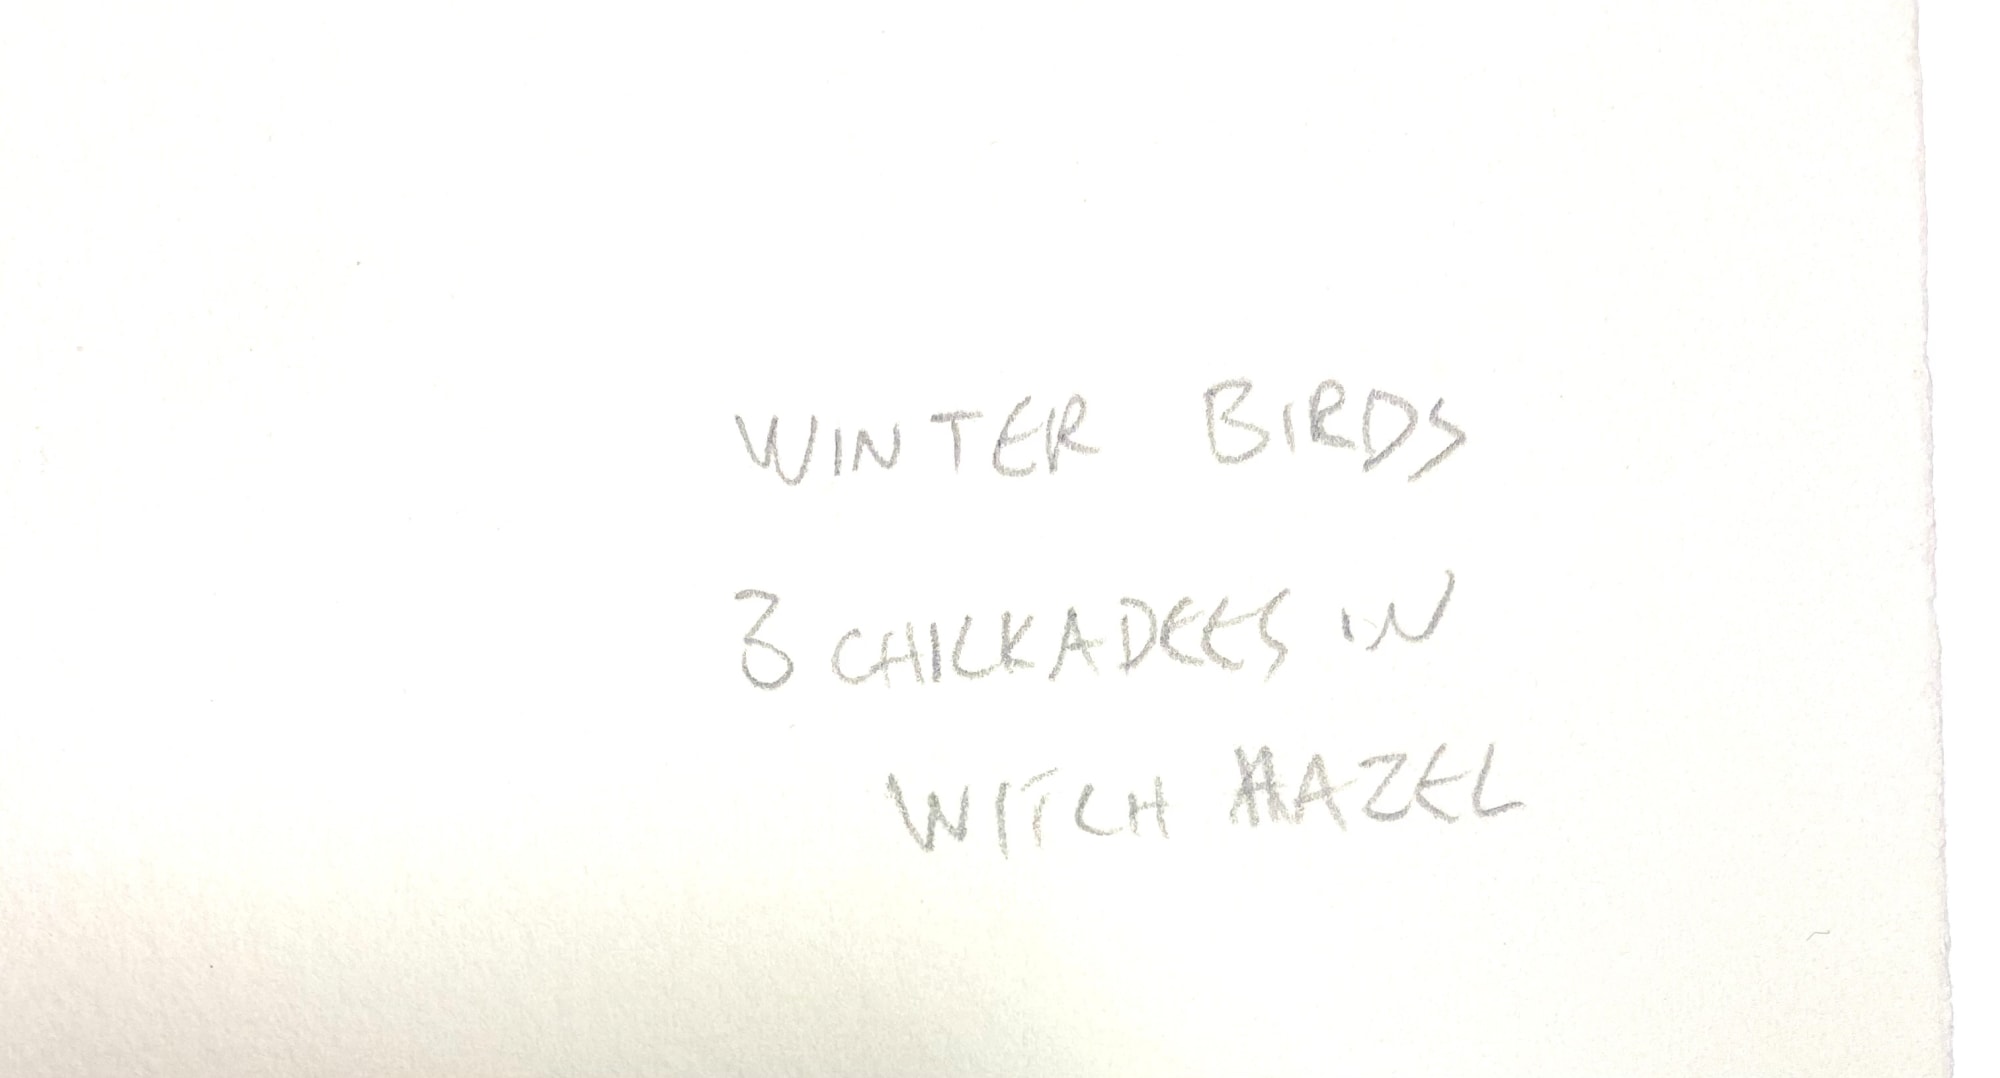 WINTER BIRDS
3 CHICKADEES IN
WITCH HAZEL